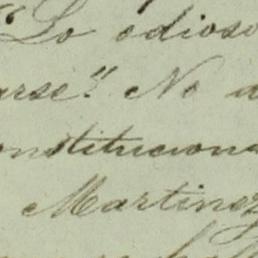 "Lo odioso
arse". No a
onstituciona
Martinez